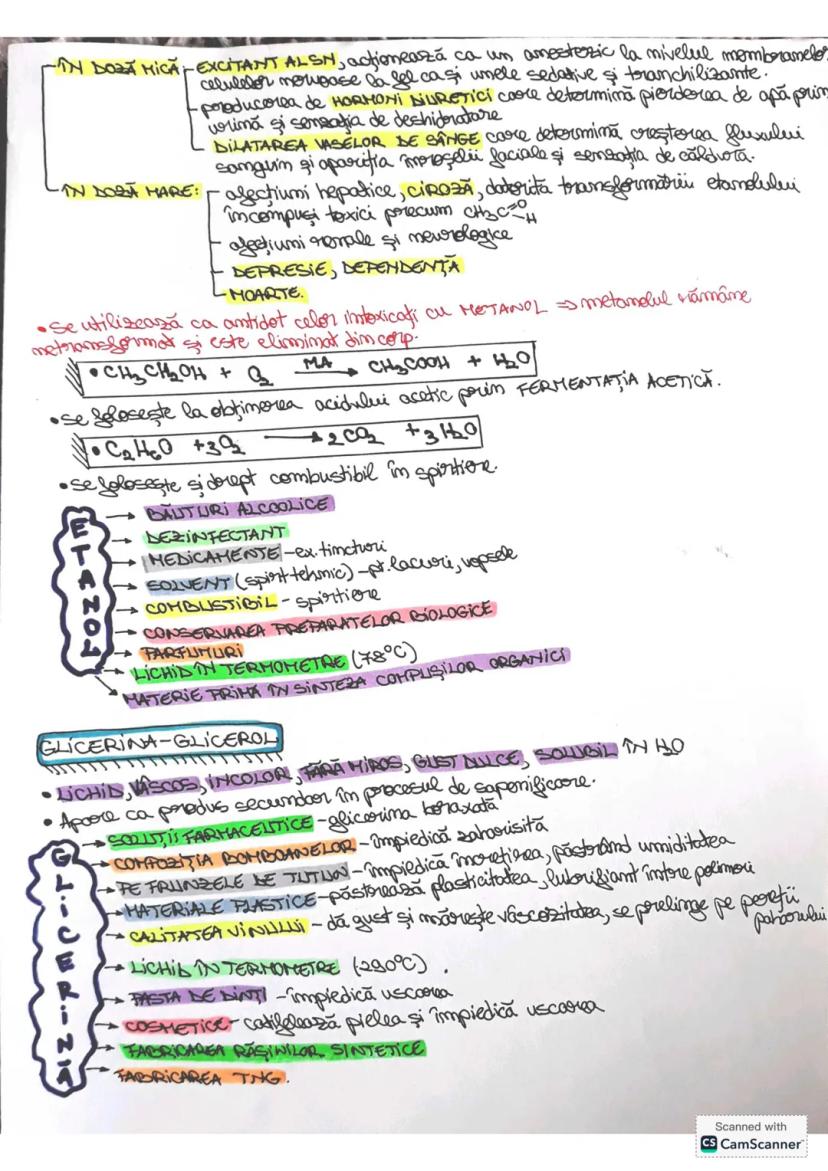 ÎN DOZĂ MICĂ - EXCITANT AL SN, acționează ca un anestezic la nivelul membranelor
celulelor nervoase la fel ca și unele sedative și tranchilizante.
- producerea de HORMONI DIURETICI care determină pierderea de apă prin
urină și senzația de deshidratare
DILATAREA VASELOR DE SÂNGE care determină creșterea fluxului
sanguin și apariția înroșelii faciale și senzația de căldură.
ÎN DOZĂ MARE: - afecțiuni hepatice, CIROZĂ, datorită transformării etanolului
în compuși toxici precum CH3C=O-H
- afecțiuni renale și neurologice
- DEPRESIE, DEPENDENȚĂ
- MOARTE.
• Se utilizează ca antidot celor intoxicați cu METANOL => metanolul rămâne
netransformat și este eliminat din corp.
• CH3CH2OH + O2 MA→ CH3COOH + H2O
• Se folosește la obținerea acidului acetic prin FERMENTAȚIA ACETICĂ.
• C2H6O +3O2 → 2CO2 +3H2O
• Se folosește și drept combustibil în spirtiere.
ETANOL
→ BĂUTURI ALCOOLICE
→ DEZINFECTANT
→ MEDICAMENTE - ex. tincturi
→ SOLVENT (spirt tehnic) - pt. lacuri, vopsele
→ COMBUSTIBIL - spirtiere
→ CONSERVAREA PREPARATELOR BIOLOGICE
→ PARFUMURI
→ LICHID ÎN TERMOMETRE (78°C)
→ MATERIE PRIMĂ ÎN SINTEZA COMPUȘILOR ORGANICI
GLICERINA-GLICEROL
• LICHID, VÂSCOS, INCOLOR, FĂRĂ MIROS, GUST DULCE, SOLUBIL ÎN H2O
• Apare ca produs secundar în procesul de saponificare.
GLICERINĂ
→ SOLUȚII FARMACEUTICE - glicerina boraxată
→ COMPOZIȚIA BOMBOANELOR - împiedică zaharisită
→ PE FRUNZELE DE TUTUN - împiedică încrețirea, păstrând umiditatea
→ MATERIALE PLASTICE - păstrează plasticitatea, lubrifiant între polimeri
→ CALITATEA VINULUI - dă gust și mărește vâscozitatea, se prelinge pe pereții
paharului
→ LICHID ÎN TERMOMETRE (290°C).
→ PASTA DE DINȚI - împiedică uscarea
→ COSMETICE - catifelează pielea și împiedică uscarea
→ FABRICAREA RĂȘINILOR SINTETICE
→ FABRICAREA TNG.
Scanned with
CS CamScanner